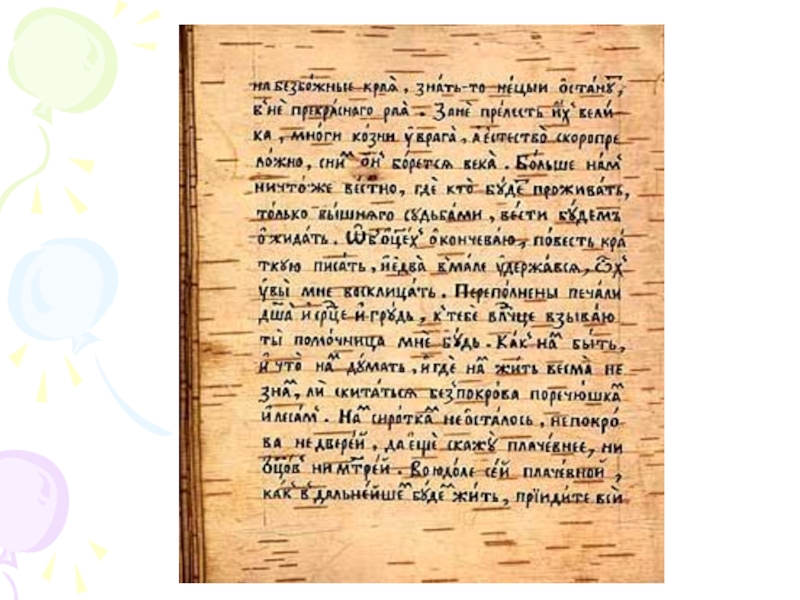 на безбо́жные края̀, зна́ть-то не́цыи ѻста́нꙋ,
в нѐ прекра́снаго рая̀. Занѐ пре́лесть и҆́х вели́
ка, мно́ги ко́зни ᲂу҆ врага̀, а҆ е҆стество̀ скоропре
ло́жно, сни́м ѻ҆́н бо́рется века̀. Бо́льше на́м
ничто́же ве́стно, гдѐ кто̀ бꙋ́де прожива́ть,
то́лько вы́шняго сꙋдьба́ми, ве́сти бꙋ́демъ
ѻ҆жида́ть. Ѡ҆б ѻ҆ц҃е́х ѻ҆кончева́ю, по́весть кра́
ткꙋю писа́ть, и҆ е҆два̀ в ма́ле ᲂу҆держа́вся,
ᲂу҆вы̀ мне восклица́ть. Перепо́лнены печа́ли
дш҃а̀ и҆ се́рце и҆ грꙋ́дь, к тебѐ вл҃чце взыва́ю
ты̀ помо́чница мнѐ бꙋ́дь. Ка́к на́м бы́ть,
и҆ что̀ на́м дꙋ́мать, и҆ гдѐ на́м жи́ть весма̀ не
зна́м, лѝ скита́ться без покро́ва по речю́шкам
и҆ леса́м. На́м сиро́ткам не ѻ҆ста́лось, не покро́
ва не двере́й, да е҆щѐ скажꙋ̀ плаче́внее, ни
ѻ҆ц҃о́в ни мт҃ре́й. Во ю҆до́ле се́й плаче́вной,
ка́к в дальне́йшем бꙋ́дем жи́ть, прїиди́те всѝ